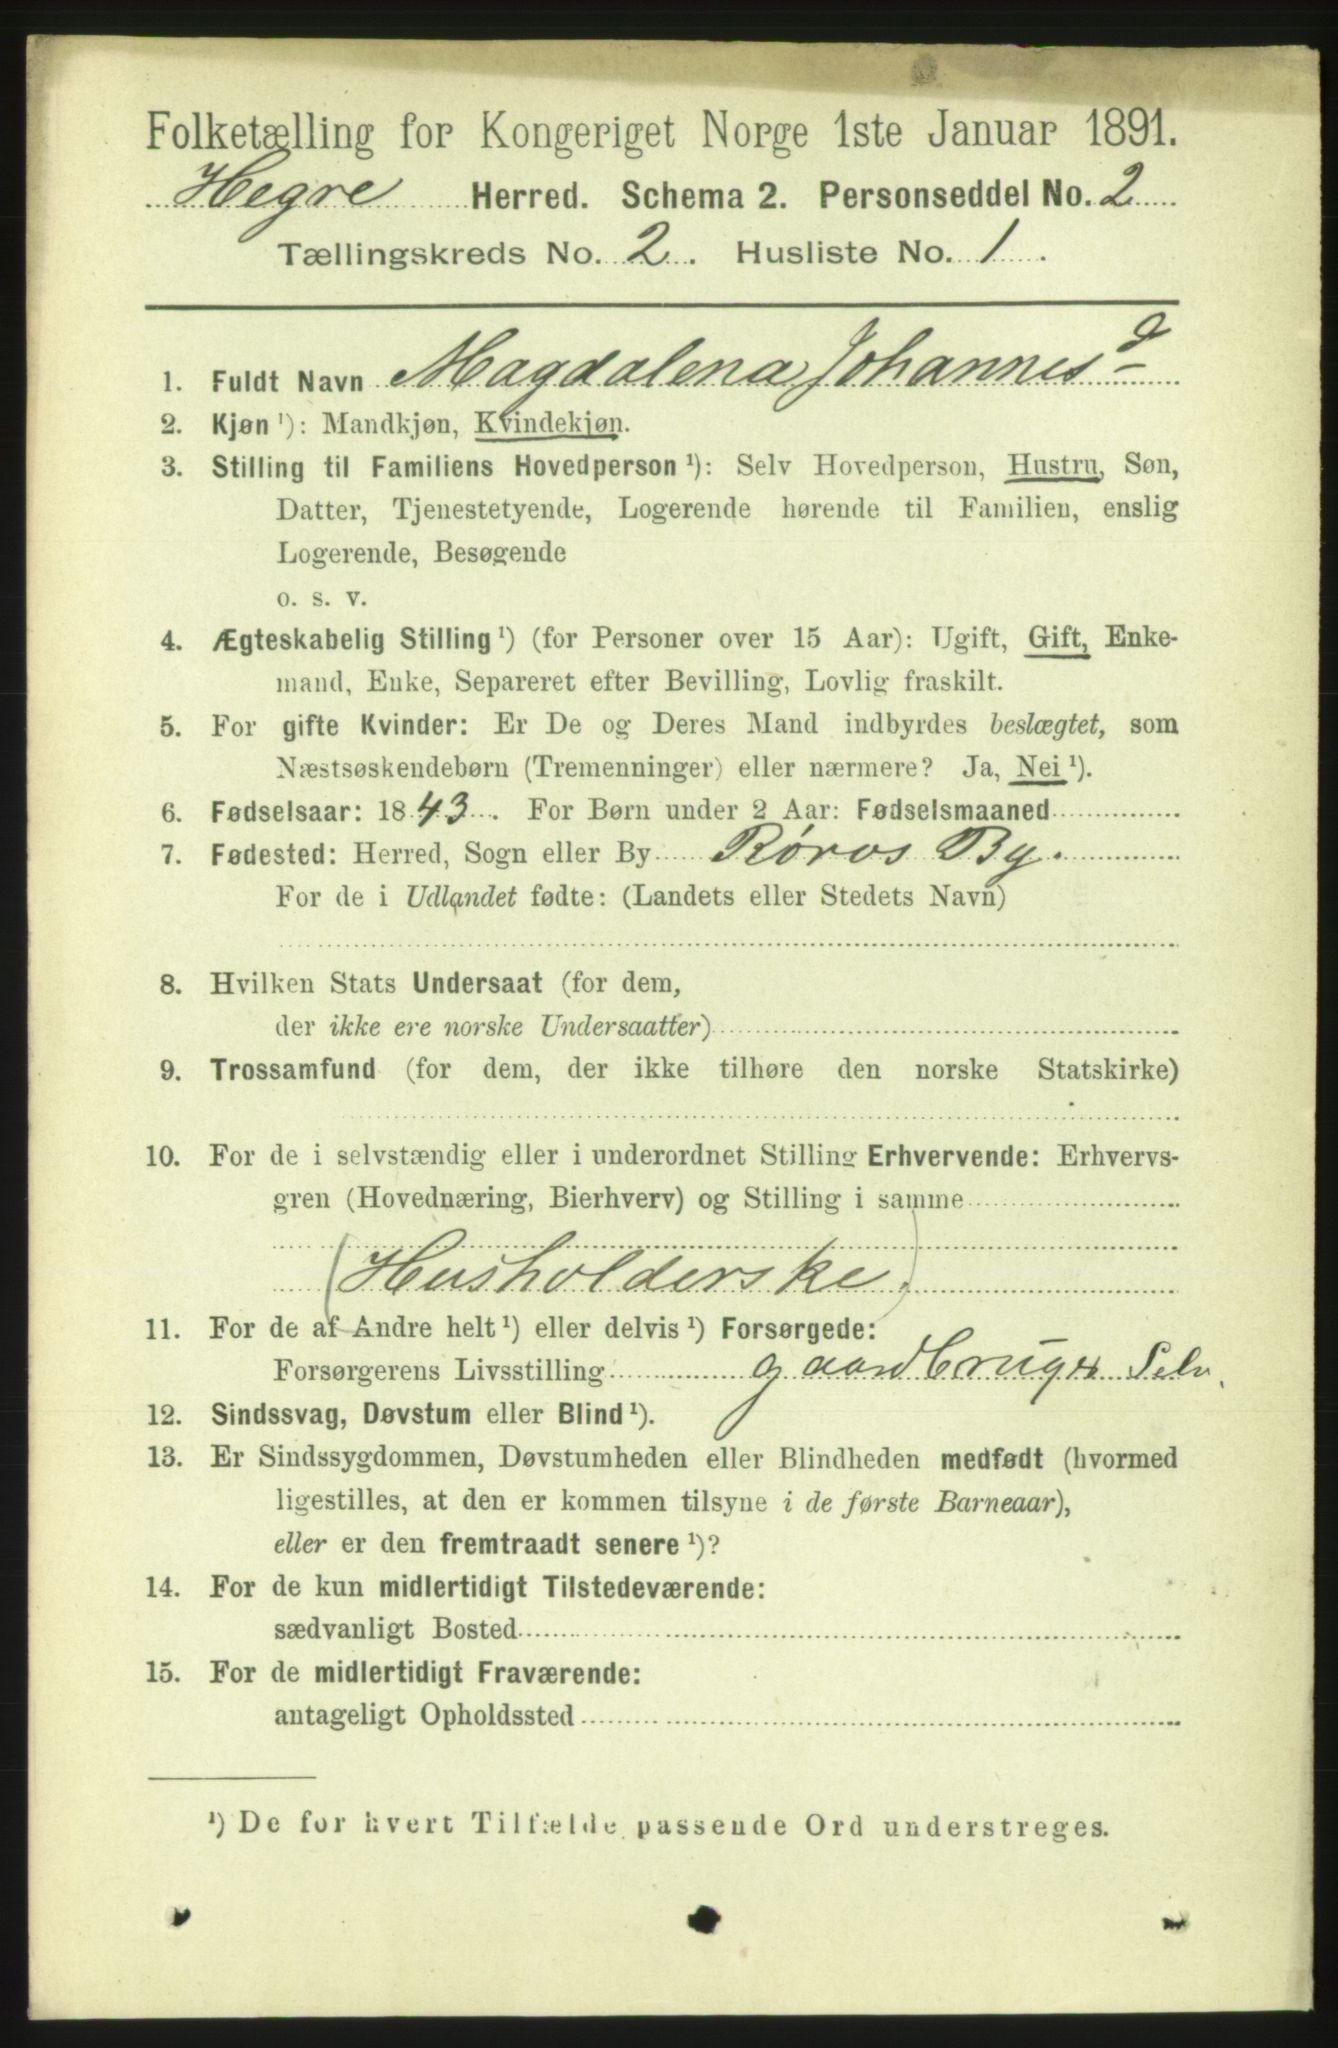 Folketælling for Kongeriget Norge 1ste Januar 1891.
Hegre Herred. Schema 2. Personseddel No. 2
Tællingskreds No. 2. Husliste No. 1.
1. Fuldt Navn Magdalena Johannesd
2. Kjøn ¹): Mandkjøn, Kvindekjøn.
3. Stilling til Familiens Hovedperson ¹): Selv Hovedperson, Hustru, Søn,
Datter, Tjenestetyende, Logerende hørende til Familien, enslig
Logerende, Besøgende
o. s. v.
4. Ægteskabelig Stilling ¹) (for Personer over 15 Aar): Ugift, Gift, Enke-
mand, Enke, Separeret efter Bevilling, Lovlig fraskilt.
5. For gifte Kvinder: Er De og Deres Mand indbyrdes beslægtet, som
Næstsøskendebørn (Tremenninger) eller nærmere? Ja, Nei ¹).
6. Fødselsaar: 1843. For Børn under 2 Aar: Fødselsmaaned
7. Fødested: Herred, Sogn eller By Røros By.
For de i Udlandet fødte: (Landets eller Stedets Navn)
8. Hvilken Stats Undersaat (for dem,
der ikke ere norske Undersaatter)
9. Trossamfund (for dem, der ikke tilhøre den norske Statskirke)
10. For de i selvstændig eller i underordnet Stilling Erhvervende: Erhvervs-
gren (Hovednæring, Bierhverv) og Stilling i samme
(Husholderske.)
11. For de af Andre helt ¹) eller delvis ¹) Forsørgede:
Forsørgerens Livsstilling gaardbruger Selv.
12. Sindssvag, Døvstum eller Blind ¹).
13. Er Sindssygdommen, Døvstumheden eller Blindheden medfødt (hvormed
ligestilles, at den er kommen tilsyne i de første Barneaar),
eller er den fremtraadt senere ¹)?
14. For de kun midlertidigt Tilstedeværende:
sædvanligt Bosted
15. For de midlertidigt Fraværende:
antageligt Opholdssted
¹) De for hvert Tilfælde passende Ord understreges.